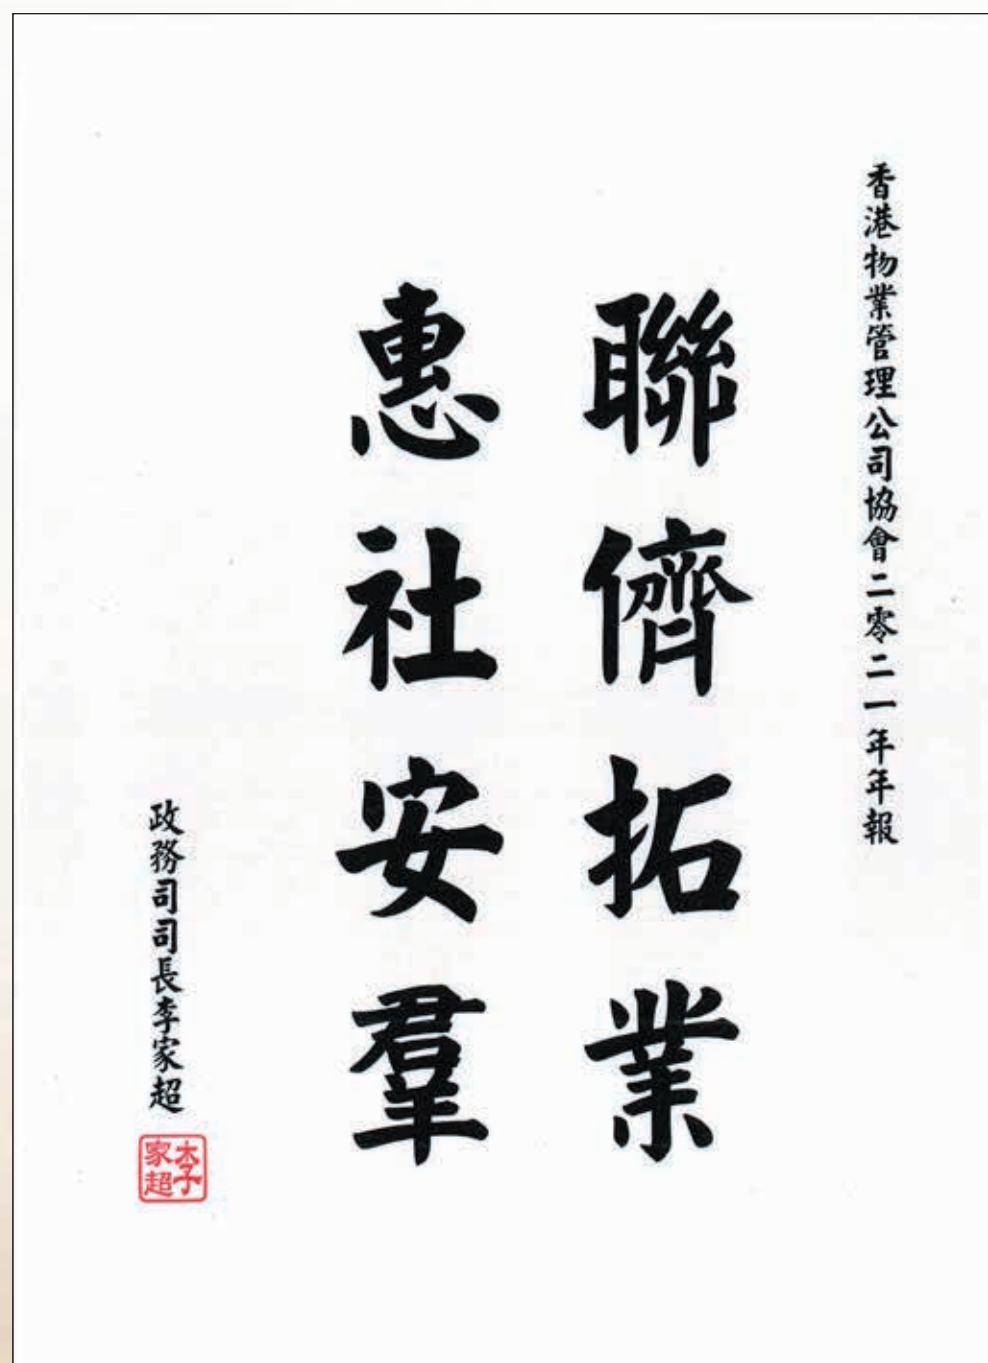 香港物業管理公司協會二零二一年年報
聯儕拓業
惠社安羣
政務司司長李家超
李家超